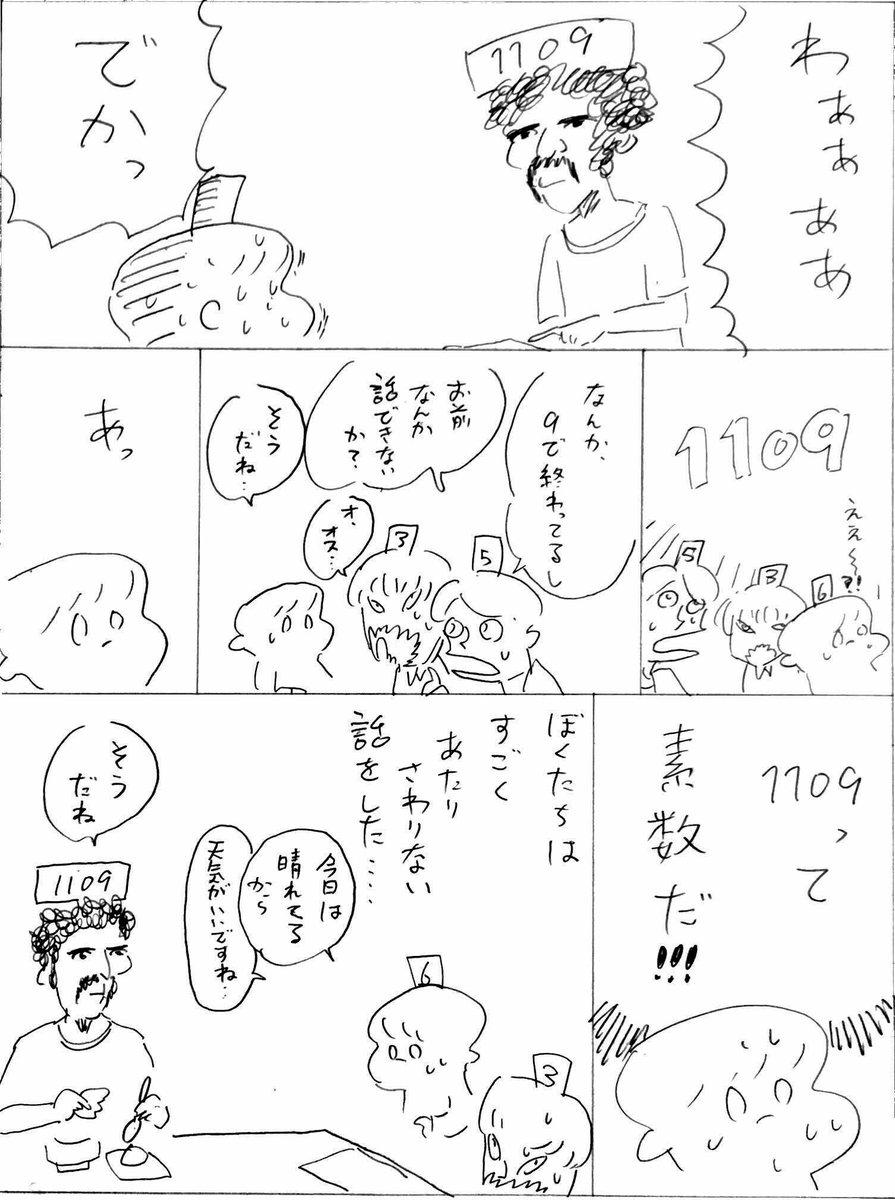 わぁぁぁぁ
1109
でかっ
1109
ええ〜⁈
5
3
6
なんか、
9で終わってるし
お前
なんか
話できない
か?
オ、
オス…
そう
だね…
3
5
あっ
1109って
素数だ!!!
ぼくたちは
すごく
あたり
さわりない
話をした……
今日は
晴れてる
から
天気がいいですね…
そう
だね
6
3
1109